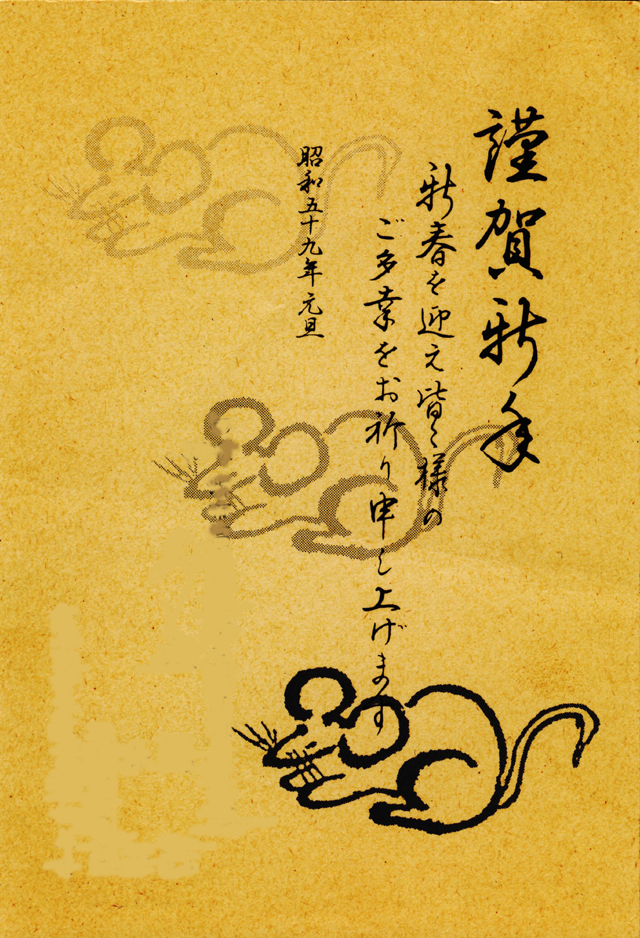 謹賀新年
新春を迎え皆々様の
ご多幸をお祈り申し上げます
昭和五十九年元旦